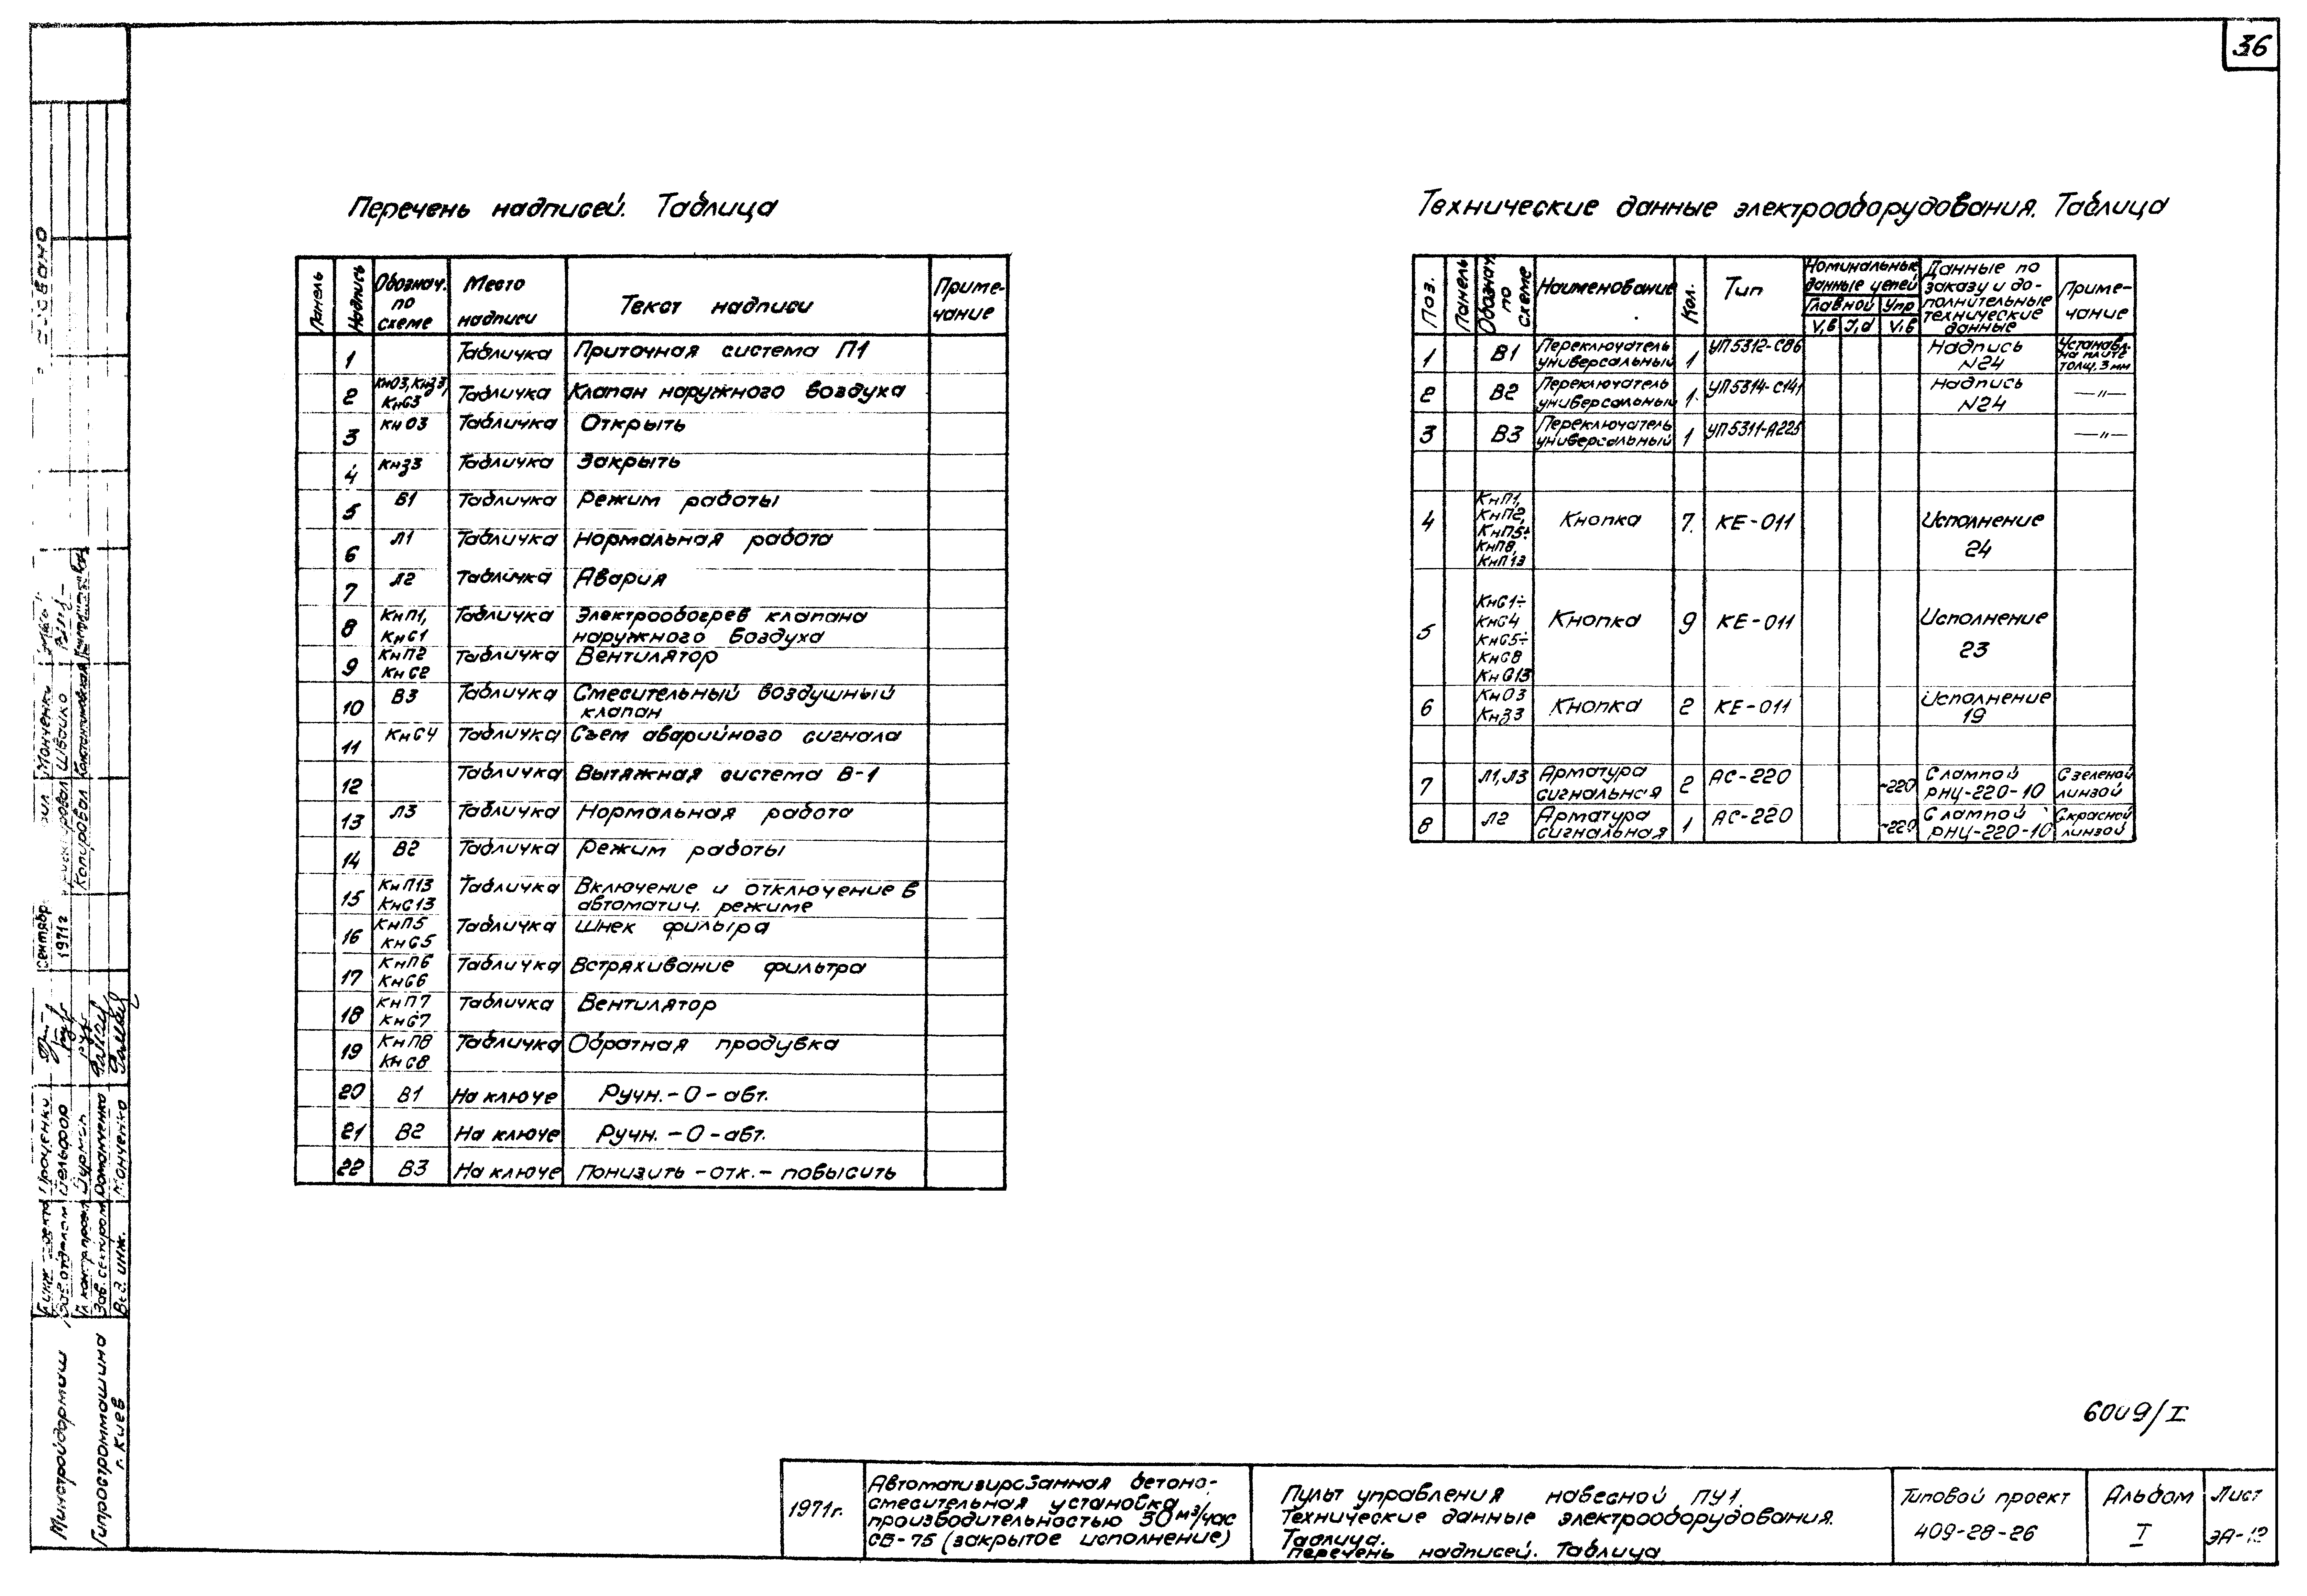 36
Перечень надписей. Таблица
Панель
Надпись
Обознач. по схеме
Место надписи
Текст надписи
Примечание
1 Табличка Приточная система П1
2 КнО3, КнЗ3, КнС3 Табличка Клапан наружного воздуха
3 КнО3 Табличка Открыть
4 КнЗ3 Табличка Закрыть
5 В1 Табличка Режим работы
6 Л1 Табличка Нормальная работа
7 Л2 Табличка Авария
8 КнП1, КнС1 Табличка Электрообогрев клапана наружного воздуха
9 КнП2 КнС2 Табличка Вентилятор
10 В3 Табличка Смесительный воздушный клапан
11 КнС4 Табличка Съем аварийного сигнала
12 Табличка Вытяжная система В-1
13 Л3 Табличка Нормальная работа
14 В2 Табличка Режим работы
15 КнП13 КнС13 Табличка Включение и отключение в автоматич. режиме
16 КнП5 КнС5 Табличка Шнек фильтра
17 КнП6 КнС6 Табличка Встряхивание фильтра
18 КнП7 КнС7 Табличка Вентилятор
19 КнП8 КнС8 Табличка Обратная продувка
20 В1 На ключе Ручн.-О-авт.
21 В2 На ключе Ручн.-О-авт.
22 В3 На ключе Понизить-отк.-повысить
Технические данные электрооборудования. Таблица
Поз.
Панель
Обознач. по схеме
Наименование
Кол.
Тип
Номинальные данные цепей
Главной Упр
V,в J,а V,в
Данные по заказу и дополнительные технические данные
Примечание
1 В1 Переключатель универсальный 1 УП5312-С86 Надпись N24 Установл. на плите толщ. 3 мм
2 В2 Переключатель универсальный 1. УП5314-С141 Надпись N24 —"—
3 В3 Переключатель универсальный 1 УП5311-А225 —"—
4 КнП1, КнП2, КнП5÷ КнП8, КнП13 Кнопка 7. КЕ-011 Исполнение 24
5 КнС1÷ КнС4 КнС5÷ КнС8 КнС13 Кнопка 9 КЕ-011 Исполнение 23
6 КнО3 КнЗ3 Кнопка 2 КЕ-011 Исполнение 19
7 Л1, Л3 Арматура сигнальная 2 АС-220 ~220 С лампой РНЦ-220-10 С зеленой линзой
8 Л2 Арматура сигнальная 1 АС-220 ~220 С лампой РНЦ-220-10 С красной линзой
6009/I
1971г.
Автоматизированная бетоно-
смесительная установка
производительностью 30 м³/час
СБ-75 (закрытое исполнение)
Пульт управления навесной ПУ1.
Технические данные электрооборудования.
Таблица.
Перечень надписей. Таблица
Типовой проект
409-28-26
Альбом
I
Лист
ЭА-12
Минстройдормаш
Гипростроммашина
г. Киев
Зав. отделом Бельфор
Зав. сектором Романченко
Вед. инж. Монченко
сентябр.
1971г
Монченко
Швайко
Копировал Константиновская